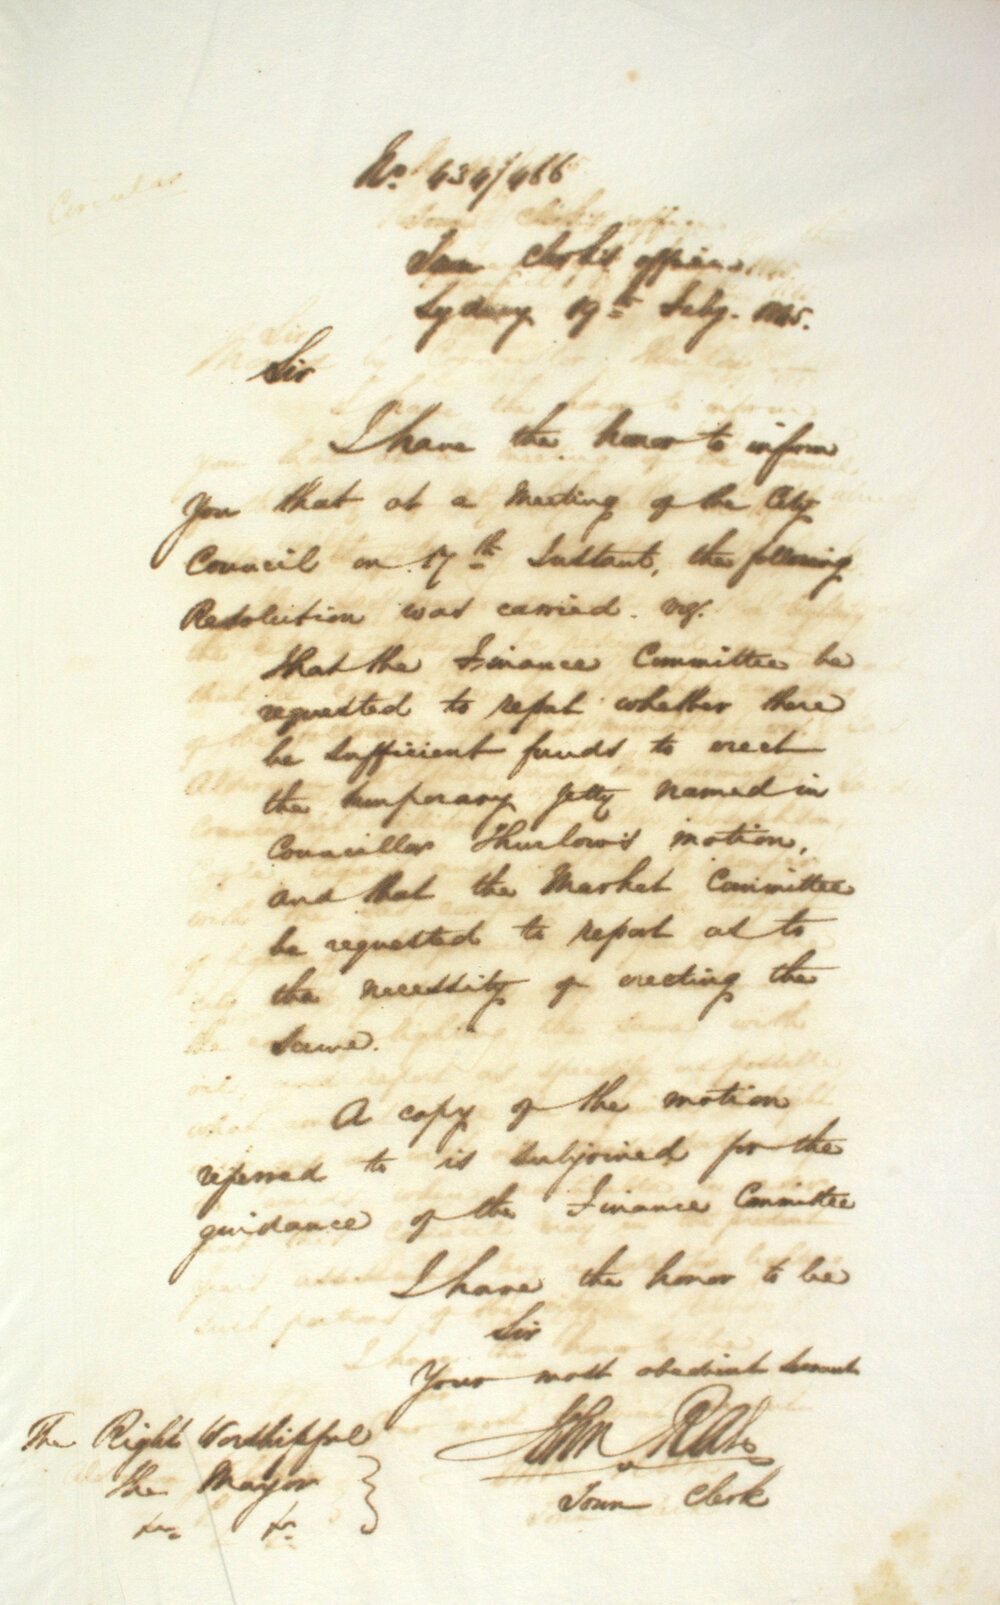 No. 434/466
Town Clerk's Office
Sydney 19th Feby. 1845.
Sir
I have the honor to inform
you that at a Meeting of the City
Council on 17th Instant, the following
Resolution was carried. viz.
that the Finance Committee be
requested to report whether there
be sufficient funds to erect
the temporary Jetty named in
Councillor Thurlow's motion,
and that the Market Committee
be requested to report as to
the necessity of erecting the
same.
A copy of the motion
referred to is subjoined for the
guidance of the Finance Committee
I have the honor to be
Sir
Your most obedient Servant
John Rae
Town Clerk
The Right Worshipful
the Mayor
&c. &c.
Circular